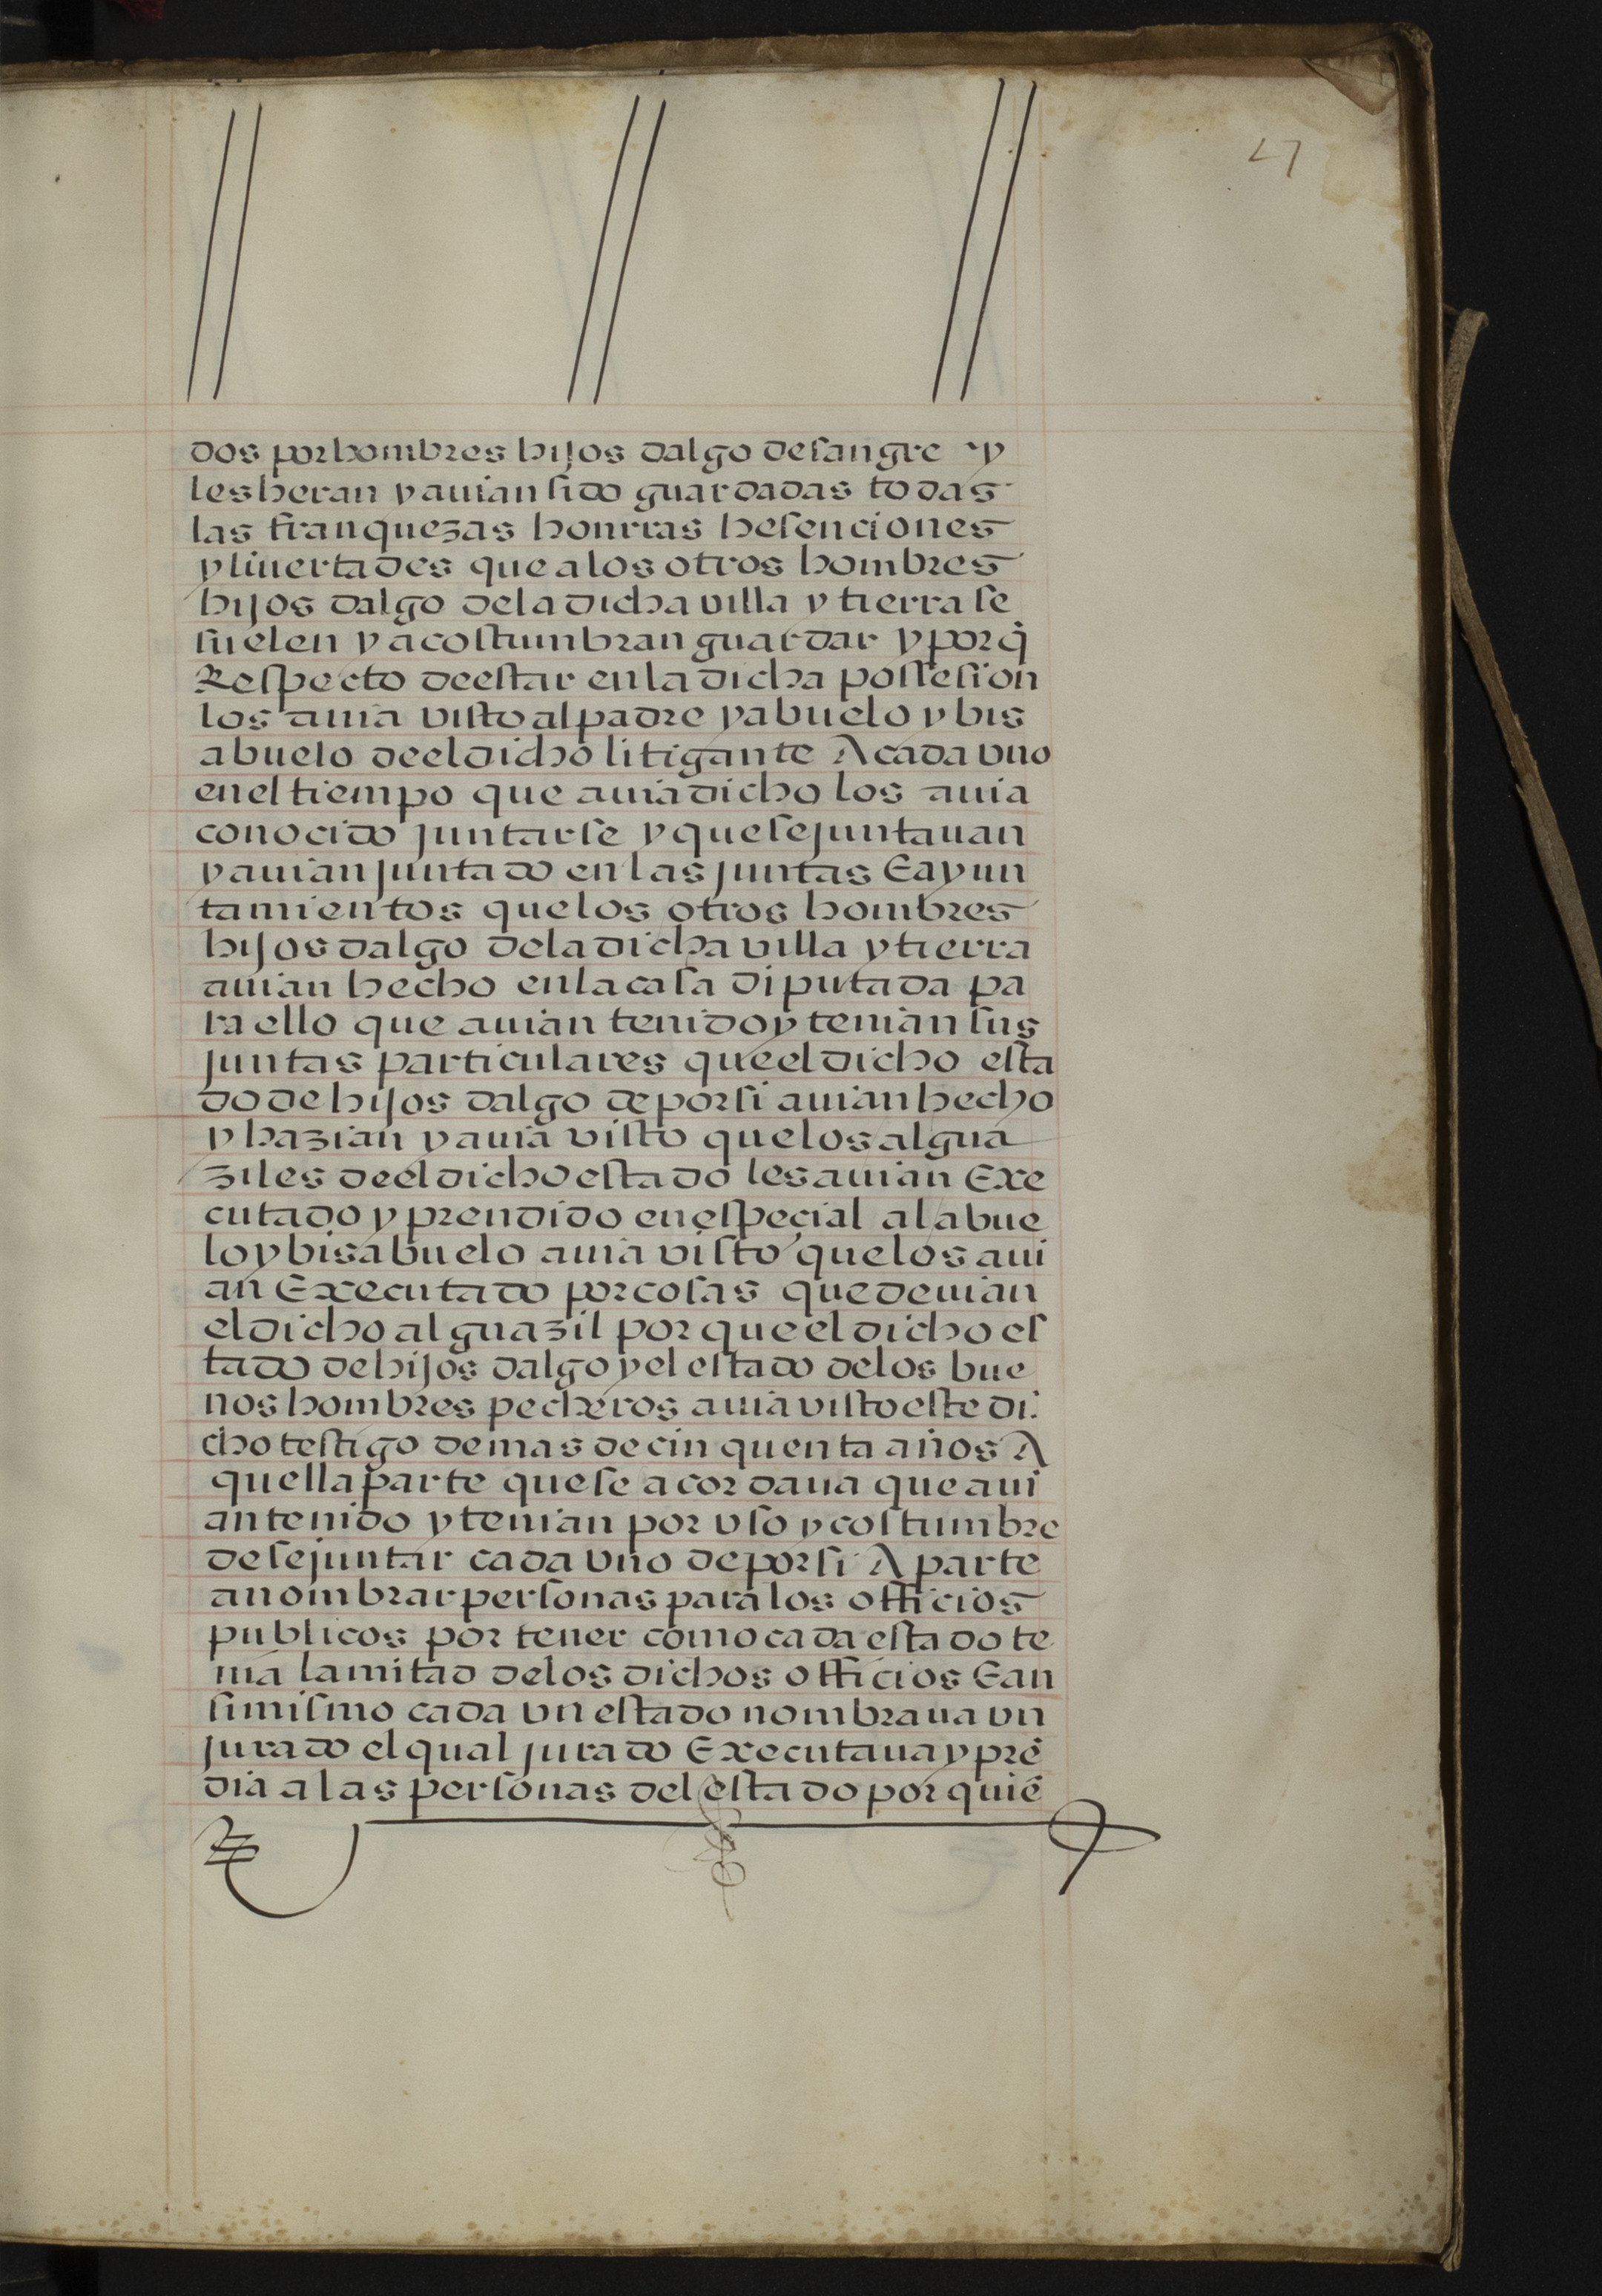 27
dos por hombres hijos dalgo de sangre y
les heran y auian sido guardadas todas
las franquezas honrras hesenciones
y liuertades que a los otros hombres
hijos dalgo de la dicha villa y tierra se
suelen y acostumbran guardar y por q̃
Respecto de estar en la dicha possesion
los auia visto al padre y abuelo y bis
abuelo de el dicho litigante A cada vno
en el tiempo que auia dicho los auia
conocido juntarse y que se juntauan
y auian juntado en las juntas E ayun
tamientos que los otros hombres
hijos dalgo de la dicha villa y tierra
auian hecho en la casa diputada pa
ra ello que auian tenido y tenian sus
juntas particulares que el dicho esta
do de hijos dalgo de por si auian hecho
y hazian y auia visto que los algua
ziles de el dicho estado les auian Exe
cutado y prendido en especial al abue
lo y bisabuelo auia visto que los aui
an Executado por cosas que deuian
el dicho alguazil por que el dicho es
tado de hijos dalgo y el estado de los bue
nos hombres pecheros auia visto este di
cho testigo de mas de cinquenta años A
quella parte que se acordaua que aui
an tenido y tenian por vso y costumbre
de se juntar cada vno de por si A parte
a nombrar personas para los officios
publicos por tener como cada estado te
nia la mitad de los dichos officios E an
simismo cada vn estado nombraua vn
jurado el qual jurado Executaua y prē
dia a las personas del estado por quiē